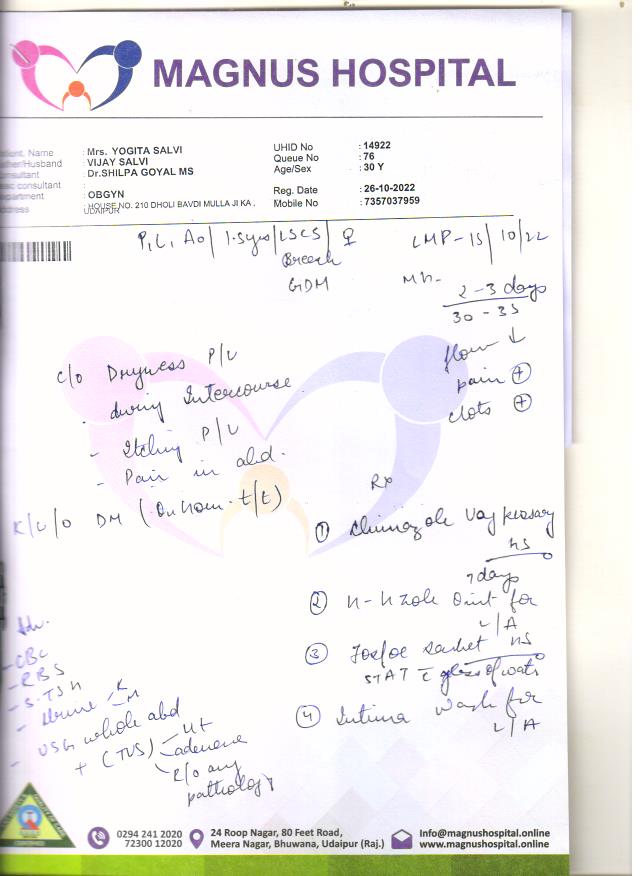 MAGNUS HOSPITAL
Patient. Name : Mrs. YOGITA SALVI
Father/Husband : VIJAY SALVI
Consultant : Dr.SHILPA GOYAL MS
consultant :
Department : OBGYN
Address : HOUSE NO. 210 DHOLI BAVDI MULLA JI KA ,
UDAIPUR
UHID No : 14922
Queue No : 76
Age/Sex : 30 Y
Reg. Date : 26-10-2022
Mobile No : 7357037959
P1 L1 A0 / 1.5yrs / LSCS / ♀
Breech
GDM
LMP - 15/10/22
MH - 2-3 days
30-35
flow ↓
pain +
clots +
c/o Dryness P/V
- during Intercourse
- Itching P/V
- Pain in abd.
K/c/o DM (On hom. t/t)
Adv.
- CBC
- RBS
- S. TSH
- Urine R
M
- USG whole abd
+ (TVS) - Ut
adenexa
R/o any
pathology
Rx
① Vag pessary
HS
7 days
② Oint for
L/A
③ sachet HS
STAT c glass of water
④ Intima wash for
L/A
0294 241 2020
72300 12020
24 Roop Nagar, 80 Feet Road,
Meera Nagar, Bhuwana, Udaipur (Raj.)
Info@magnushospital.online
www.magnushospital.online